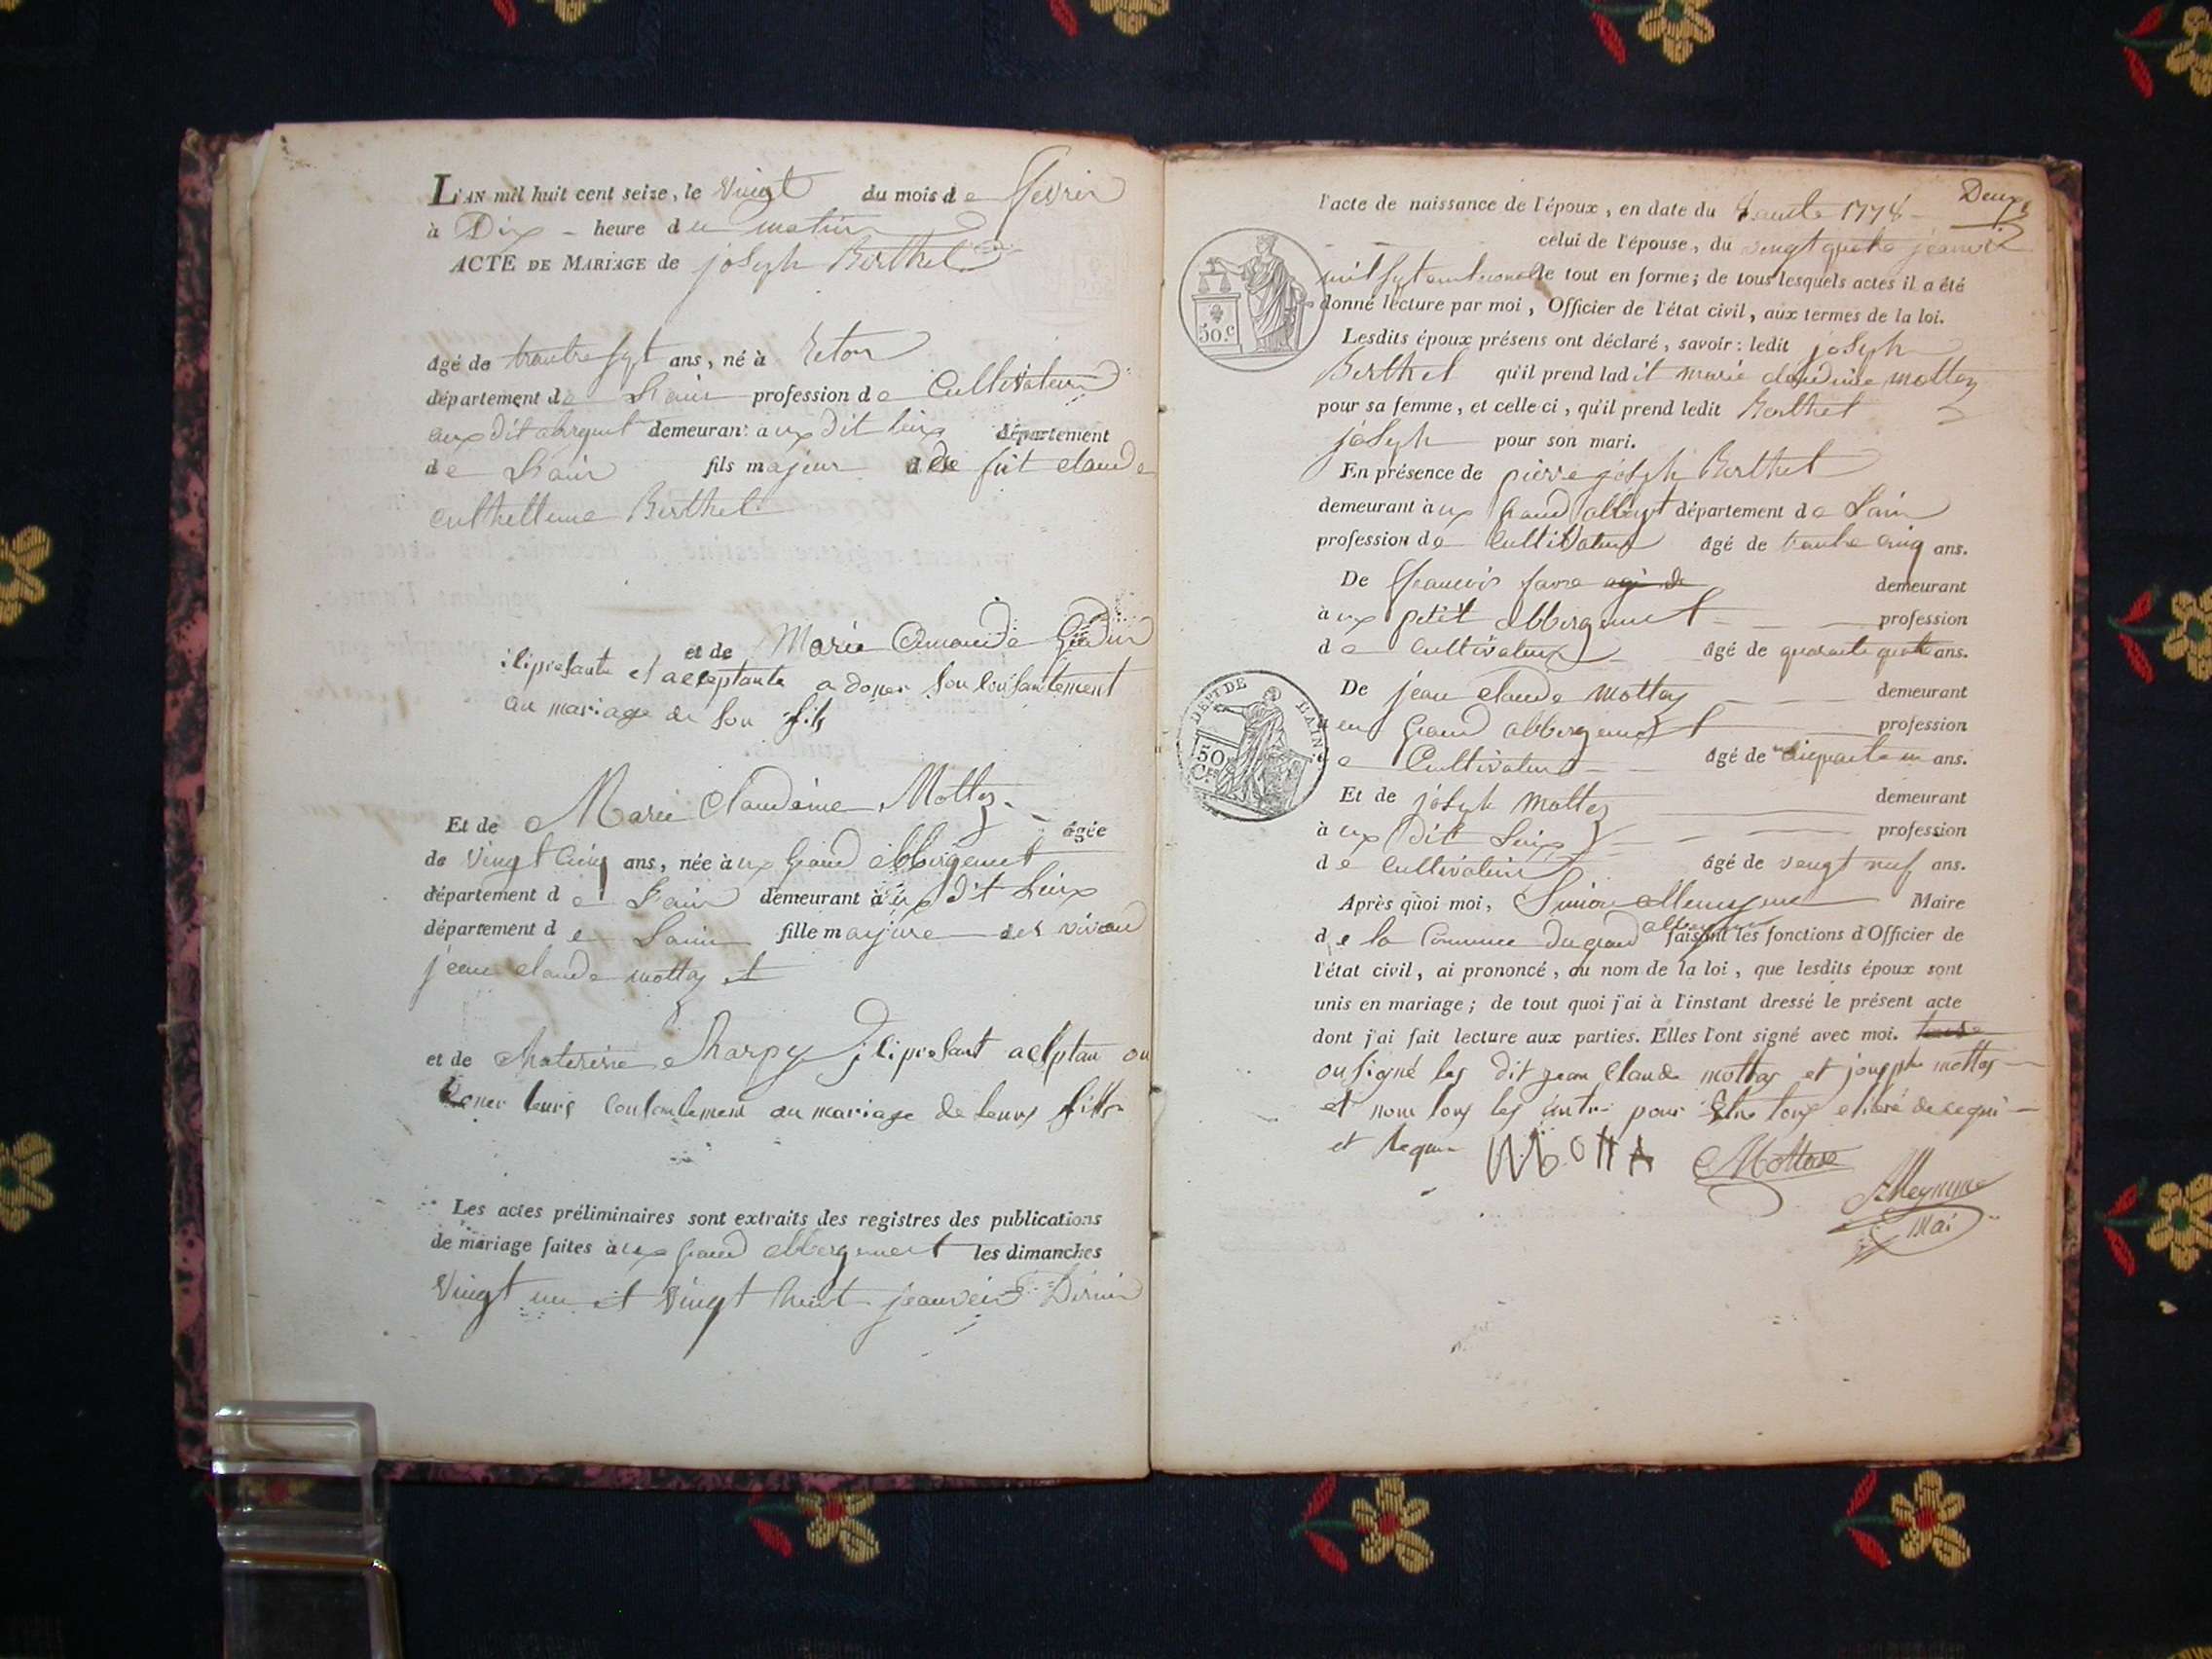 L'AN mil huit cent seize, le vingt du mois de fevrier
à Dix heure du matin
ACTE DE MARIAGE de joseph Berthet
âgé de trante sept ans, né à
département de Lain profession de Cultivateur
demeurant aux dit lieux département
de Lain fils majeur de fut claude
Berthet
et de Marie
ili presante et acceptante a doner son consantement
au mariage de son fils
Et de Marie claudine Mottaz âgée
de vingt cinq ans, née aux grand abbergement
département de Lain demeurant aux dit Lieux
département de Lain fille majure des vivand
jean claude mottaz et
et de
doner leurs au mariage de leurs fille
Les actes préliminaires sont extraits des registres des publications
de mariage faites aux grand abbergement les dimanches
vingt un et vingt huit jeanvier Dernier
Deux
l'acte de naissance de l'époux, en date du 1778
celui de l'épouse, du vingt quatre jeanvier
mil sept cent le tout en forme; de tous lesquels actes il a été
donné lecture par moi, Officier de l'état civil, aux termes de la loi.
Lesdits époux présens ont déclaré, savoir: ledit joseph
Berthet qu'il prend ladit marie claudine mottaz
pour sa femme, et celle ci, qu'il prend ledit Berthet
joseph pour son mari.
En présence de pierre joseph Berthet
demeurant aux grand abbergt département de Lain
profession de Cultivateur âgé de trante cinq ans.
De francois favre agé de demeurant
aux petit abbergement profession
de cultivateur âgé de quarante quatre ans.
De jean claude mottaz demeurant
grand abbergement profession
Cultivateur âgé de ans.
Et de joseph mottaz demeurant
aux dit Lieux profession
de cultivateur âgé de vengt neuf ans.
Après quoi moi, Simon Maire
de la Commune du grand abbergement faisant les fonctions d'Officier de
l'état civil, ai prononcé, au nom de la loi, que lesdits époux sont
unis en mariage; de tout quoi j'ai à l'instant dressé le présent acte
dont j'ai fait lecture aux parties. Elles l'ont signé avec moi.
on signé les dit jean Claude mottaz et jouseph mottaz
et non les pour
et requi
50.c
DEPT DE L'AIN
50
Ces